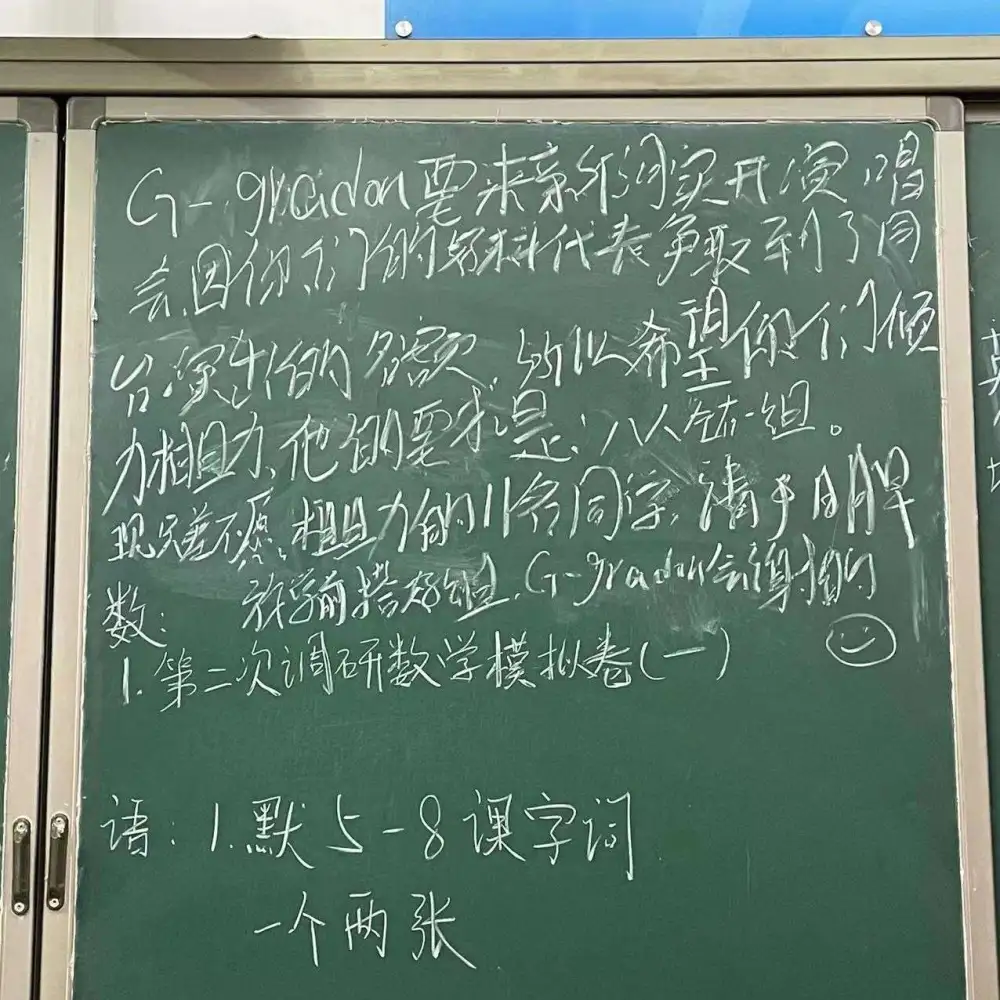 G-gradon要来新润实开演唱
会,因你们的好科代表争取到了同
台演出的名额,所以希望你们倾
力相助,他的要求是:八人在一组。
现只差不愿相助的11名同学,请于明早
放学前搭好组,G-gradon会得的
数:
1.第二次调研数学模拟卷(一)
语:1.默5-8课字词
一个两张